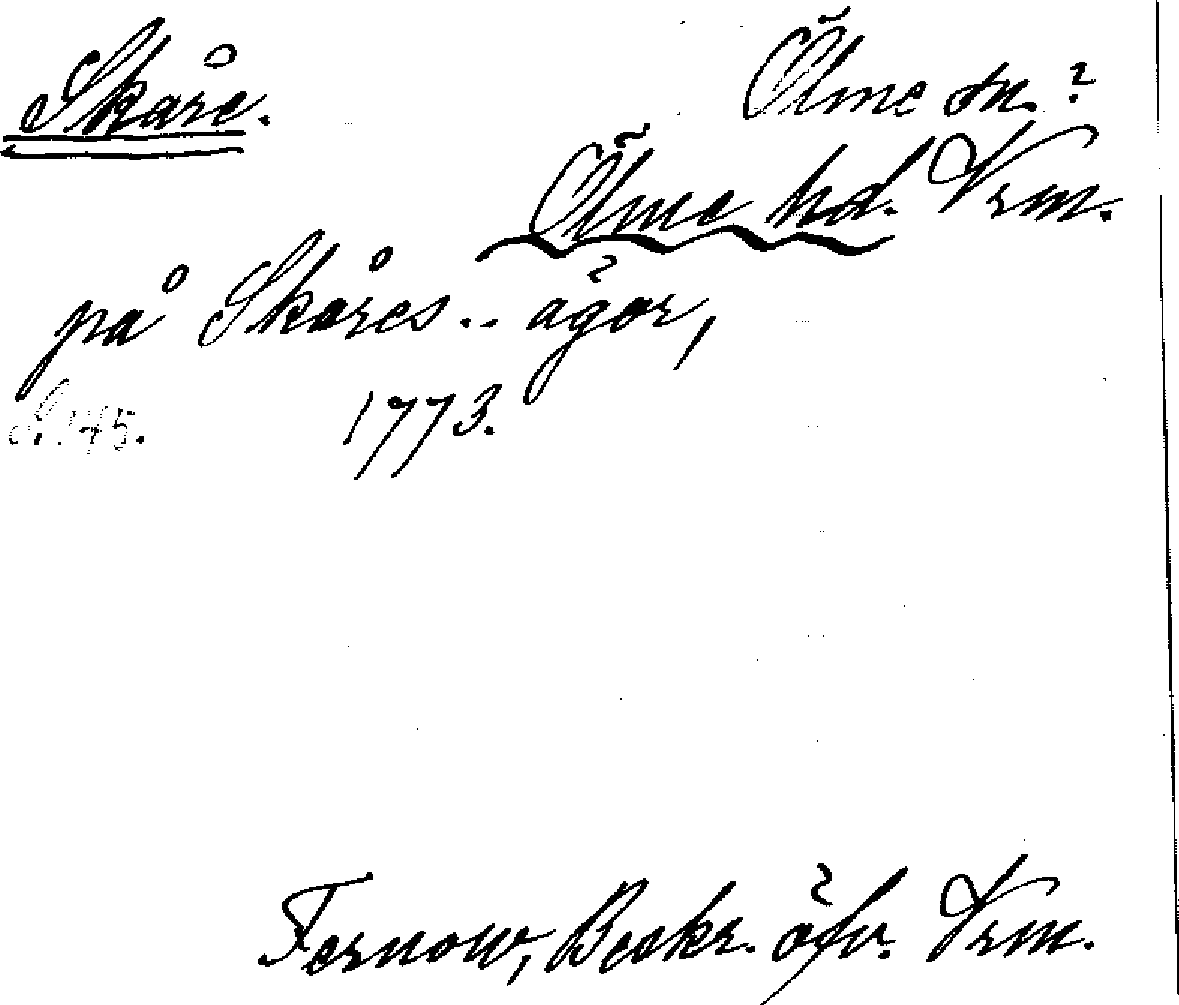 Skåre.
Ölme sn.?
Ölme hd. Vrm.
på Skåres.. ägor,
S. 145.
1773.
Fernow, Beskr. öfv. Vrm.